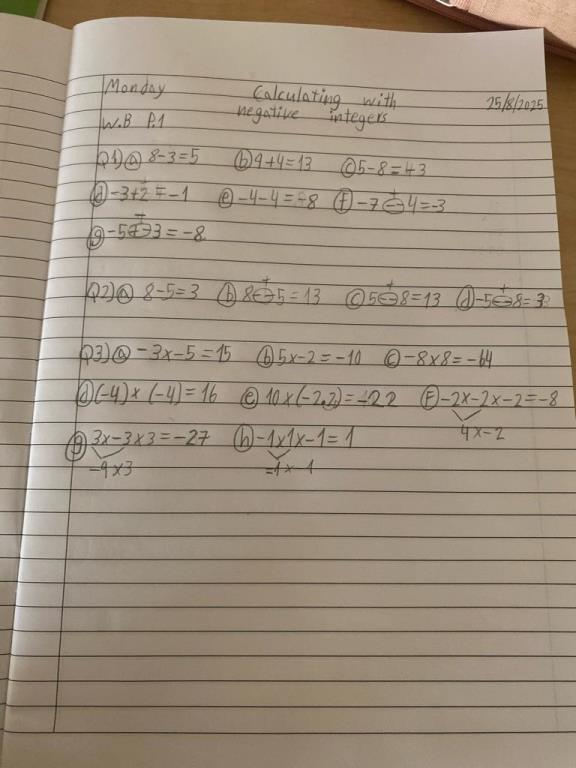 Monday Calculating with negative integers 25/8/2025
W.B P.1
Q1) ⓐ 8-3=5 ⓑ 9+4=13 ⓒ 5-8=-3
ⓓ -3+2=-1 ⓔ -4-4=-8 ⓕ -7--4=-3
ⓖ -5+-3=-8
Q2) ⓐ 8-5=3 ⓑ 8--5=13 ⓒ 5--8=13 ⓓ -5--8=3
Q3) ⓐ -3x-5=15 ⓑ 5x-2=-10 ⓒ -8x8=-64
ⓓ (-4)x(-4)=16 ⓔ 10x(-2.2)=-22 ⓕ -2x-2x-2=-8
4x-2
ⓖ 3x-3x3=-27 ⓗ -1x1x-1=1
-9x3 =-1x-1